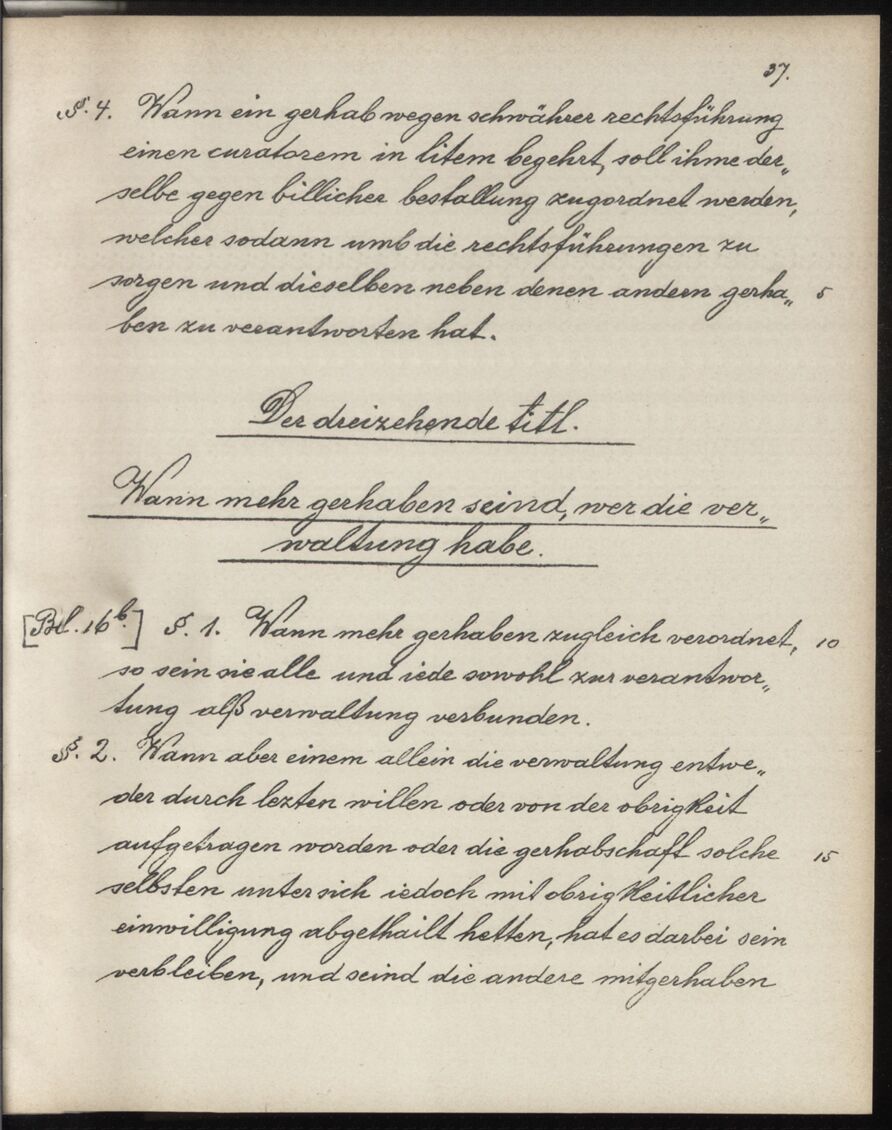 37.
§. 4. Wann ein gerhab wegen schwährer rechtsführung
einen curatorem in litem begehrt, soll ihme der„
selbe gegen billicher bestallung zugordnet werden,
welcher sodann umb die rechtsführungen zu
sorgen und dieselben neben denen andern gerha„ 5
ben zu verantworten hat.
Der dreizehende titl.
Wann mehr gerhaben seind, wer die ver„
waltung habe.
[Bl. 16b.] §. 1. Wann mehr gerhaben zugleich verordnet, 10
so sein sie alle und iede sowohl zur verantwor„
tung alß verwaltung verbunden.
§. 2. Wann aber einem allein die verwaltung entwe„
der durch lezten willen oder von der obrigkeit
aufgetragen worden oder die gerhabschaft solche 15
selbsten unter sich iedoch mit obrigkeitlicher
einwilligung abgethailt hetten, hat es darbei sein
verbleiben, und seind die andere mitgerhaben